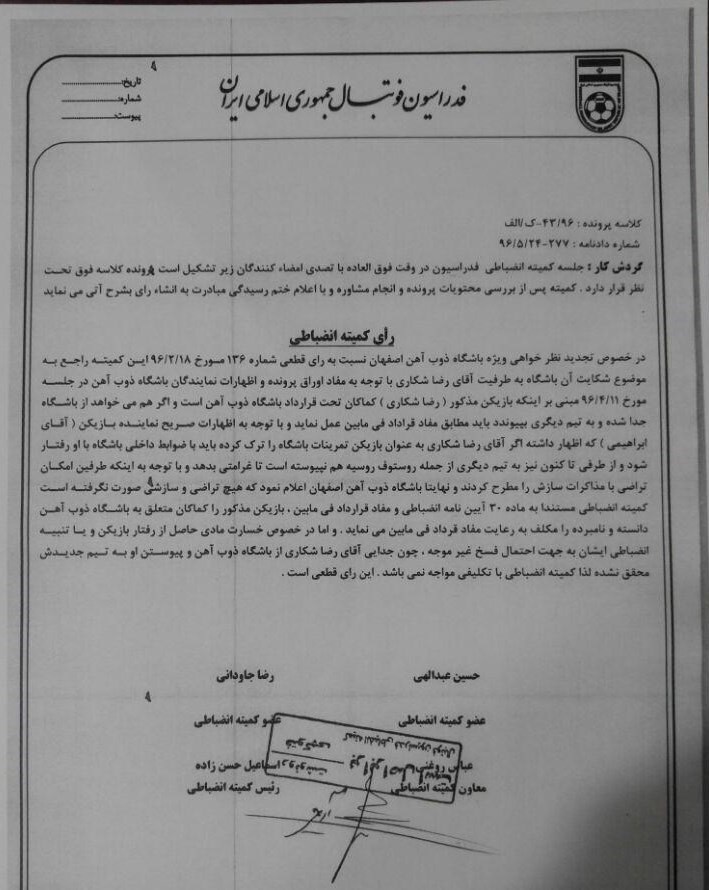 فدراسیون فوتبال جمهوری اسلامی ایران
تاریخ:
شماره:
پیوست:
کلاسه پرونده : ۴۳/۹۶-ک/الف
شماره دادنامه : ۲۷۷-۹۶/۵/۲۴
گردش کار : جلسه کمیته انضباطی فدراسیون در وقت فوق العاده با تصدی امضاء کنندگان زیر تشکیل است پرونده کلاسه فوق تحت
نظر قرار دارد . کمیته پس از بررسی محتویات پرونده و انجام مشاوره و با اعلام ختم رسیدگی مبادرت به انشاء رای بشرح آتی می نماید
رأی کمیته انضباطی
در خصوص تجدید نظر خواهی ویژه باشگاه ذوب آهن اصفهان نسبت به رای قطعی شماره ۱۳۶ مورخ ۹۶/۲/۱۸ این کمیته راجع به
موضوع شکایت آن باشگاه به طرفیت آقای رضا شکاری با توجه به مفاد اوراق پرونده و اظهارات نمایندگان باشگاه ذوب آهن در جلسه
مورخ ۹۶/۴/۱۱ مبنی بر اینکه بازیکن مذکور ( رضا شکاری ) کماکان تحت قرارداد باشگاه ذوب آهن است و اگر هم می خواهد از باشگاه
جدا شده و به تیم دیگری بپیوندد باید مطابق مفاد قراداد فی مابین عمل نماید و با توجه به اظهارات صریح نماینده بازیکن ( آقای
ابراهیمی ) که اظهار داشته اگر آقای رضا شکاری به عنوان بازیکن تمرینات باشگاه را ترک کرده باید با ضوابط داخلی باشگاه با او رفتار
شود و از طرفی تا کنون نیز به تیم دیگری از جمله روستوف روسیه هم نپیوسته است تا غرامتی بدهد و با توجه به اینکه طرفین امکان
تراضی با مذاکرات سازش را مطرح کردند و نهایتا باشگاه ذوب آهن اصفهان اعلام نمود که هیچ تراضی و سازشی صورت نگرفته است
کمیته انضباطی مستندا به ماده ۳۰ آیین نامه انضباطی و مفاد قرارداد فی مابین ، بازیکن مذکور را کماکان متعلق به باشگاه ذوب آهن
دانسته و نامبرده را مکلف به رعایت مفاد قراد فی مابین می نماید . و اما در خصوص خسارت مادی حاصل از رفتار بازیکن و یا تنبیه
انضباطی ایشان به جهت احتمال فسخ غیر موجه ، چون جدایی آقای رضا شکاری از باشگاه ذوب آهن و پیوستن او به تیم جدیدش
محقق نشده لذا کمیته انضباطی با تکلیفی مواجه نمی باشد . این رای قطعی است .
حسین عبدالهی
رضا جاودانی
عضو کمیته انضباطی
عضو کمیته انضباطی
عباس روغنی
اسماعیل حسن زاده
معاون کمیته انضباطی
رئیس کمیته انضباطی
کمیته انضباطی فدراسیون فوتبال